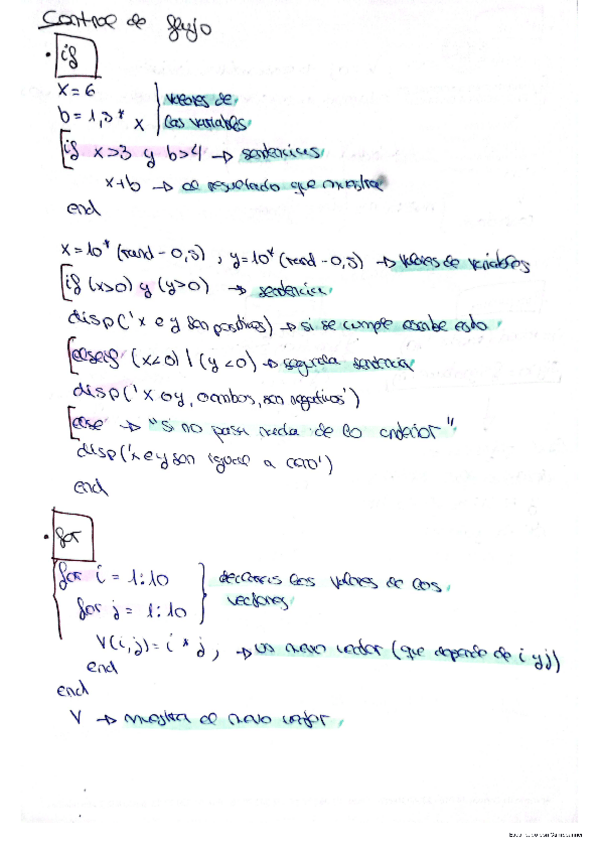 Control de flujo
• if
x=6
b=1,3* x } valores de las variables
[if x>3 y b>4 → sentencias
x+b → el resultado que muestra
end
x=10*(rand-0,5), y=10*(rand-0,5) → valores de variables
[if (x>0) y (y>0) → sentencia
disp('x e y son positivos) → si se cumple escribe esto
[elseif (x<0) | (y<0) → segunda sentencia
disp('x o y, o ambos, son negativos')
[else → "si no pasa nada de lo anterior"
disp('x e y son igual a cero')
end
• for
for i = 1:10
for j = 1:10 } declaras los valores de los vectores
V(i,j)= i * j, → un nuevo vector (que depende de i y j)
end
end
V → muestra el nuevo vector